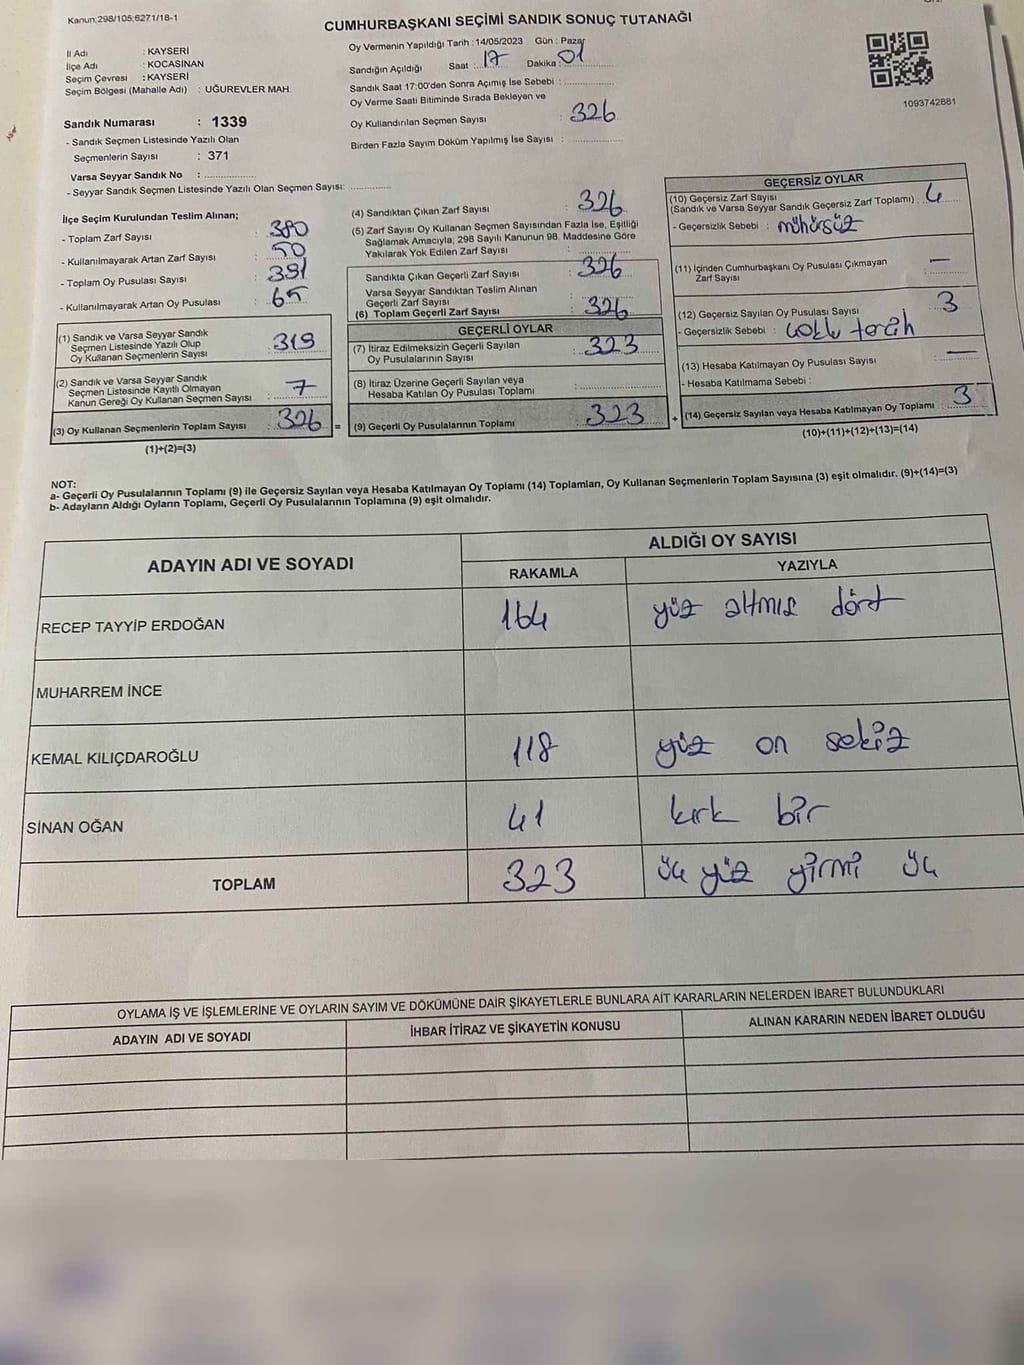 Kanun:298/105;6271/18-1
CUMHURBAŞKANI SEÇİMİ SANDIK SONUÇ TUTANAĞI
İl Adı : KAYSERİ
İlçe Adı : KOCASİNAN
Seçim Çevresi : KAYSERİ
Seçim Bölgesi (Mahalle Adı) : UĞUREVLER MAH.
Oy Vermenin Yapıldığı Tarih : 14/05/2023 Gün : Pazar
Sandığın Açıldığı Saat : 17 Dakika : 01
Sandık Saat 17:00'den Sonra Açımış İse Sebebi :
Oy Verme Saati Bitiminde Sırada Bekleyen ve
Oy Kullandırılan Seçmen Sayısı : 326
Birden Fazla Sayım Döküm Yapılmış İse Sayısı :
1093742881
Sandık Numarası : 1339
- Sandık Seçmen Listesinde Yazılı Olan
Seçmenlerin Sayısı : 371
Varsa Seyyar Sandık No :
- Seyyar Sandık Seçmen Listesinde Yazılı Olan Seçmen Sayısı:
İlçe Seçim Kurulundan Teslim Alınan;
- Toplam Zarf Sayısı : 380
- Kullanılmayarak Artan Zarf Sayısı : 50
- Toplam Oy Pusulası Sayısı : 391
- Kullanılmayarak Artan Oy Pusulası : 65
(1) Sandık ve Varsa Seyyar Sandık
Seçmen Listesinde Yazılı Olup
Oy Kullanan Seçmenlerin Sayısı : 319
(2) Sandık ve Varsa Seyyar Sandık
Seçmen Listesinde Kayıtlı Olmayan
Kanun Gereği Oy Kullanan Seçmen Sayısı : 7
(3) Oy Kullanan Seçmenlerin Toplam Sayısı : 326 =
(1)+(2)=(3)
(4) Sandıktan Çıkan Zarf Sayısı : 326
(5) Zarf Sayısı Oy Kullanan Seçmen Sayısından Fazla İse, Eşitliği
Sağlamak Amacıyla; 298 Sayılı Kanunun 98. Maddesine Göre
Yakılarak Yok Edilen Zarf Sayısı :
Sandıkta Çıkan Geçerli Zarf Sayısı : 326
Varsa Seyyar Sandıktan Teslim Alınan
Geçerli Zarf Sayısı :
(6) Toplam Geçerli Zarf Sayısı : 326
GEÇERLİ OYLAR
(7) İtiraz Edilmeksizin Geçerli Sayılan
Oy Pusulalarının Sayısı : 323
(8) İtiraz Üzerine Geçerli Sayılan veya
Hesaba Katılan Oy Pusulası Toplamı :
(9) Geçerli Oy Pusulalarının Toplamı : 323 +
GEÇERSİZ OYLAR
(10) Geçersiz Zarf Sayısı
(Sandık ve Varsa Seyyar Sandık Geçersiz Zarf Toplamı) : 4
- Geçersizlik Sebebi : mühürsüz
(11) İçinden Cumhurbaşkanı Oy Pusulası Çıkmayan
Zarf Sayısı : —
(12) Geçersiz Sayılan Oy Pusulası Sayısı : 3
- Geçersizlik Sebebi : çoklu tercih
(13) Hesaba Katılmayan Oy Pusulası Sayısı : —
- Hesaba Katılmama Sebebi :
(14) Geçersiz Sayılan veya Hesaba Katılmayan Oy Toplamı : 3
(10)+(11)+(12)+(13)=(14)
NOT:
a- Geçerli Oy Pusulalarının Toplamı (9) ile Geçersiz Sayılan veya Hesaba Katılmayan Oy Toplamı (14) Toplamları, Oy Kullanan Seçmenlerin Toplam Sayısına (3) eşit olmalıdır. (9)+(14)=(3)
b- Adayların Aldığı Oyların Toplamı, Geçerli Oy Pusulalarının Toplamına (9) eşit olmalıdır.
ADAYIN ADI VE SOYADI
ALDIĞI OY SAYISI
RAKAMLA YAZIYLA
RECEP TAYYİP ERDOĞAN 164 yüz altmış dört
MUHARREM İNCE
KEMAL KILIÇDAROĞLU 118 yüz on sekiz
SİNAN OĞAN 41 kırk bir
TOPLAM 323 üç yüz yirmi üç
OYLAMA İŞ VE İŞLEMLERİNE VE OYLARIN SAYIM VE DÖKÜMÜNE DAİR ŞİKAYETLERLE BUNLARA AİT KARARLARIN NELERDEN İBARET BULUNDUKLARI
ADAYIN ADI VE SOYADI İHBAR İTİRAZ VE ŞİKAYETİN KONUSU ALINAN KARARIN NEDEN İBARET OLDUĞU